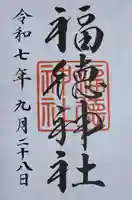 福徳神社
令和七年九月二十八日